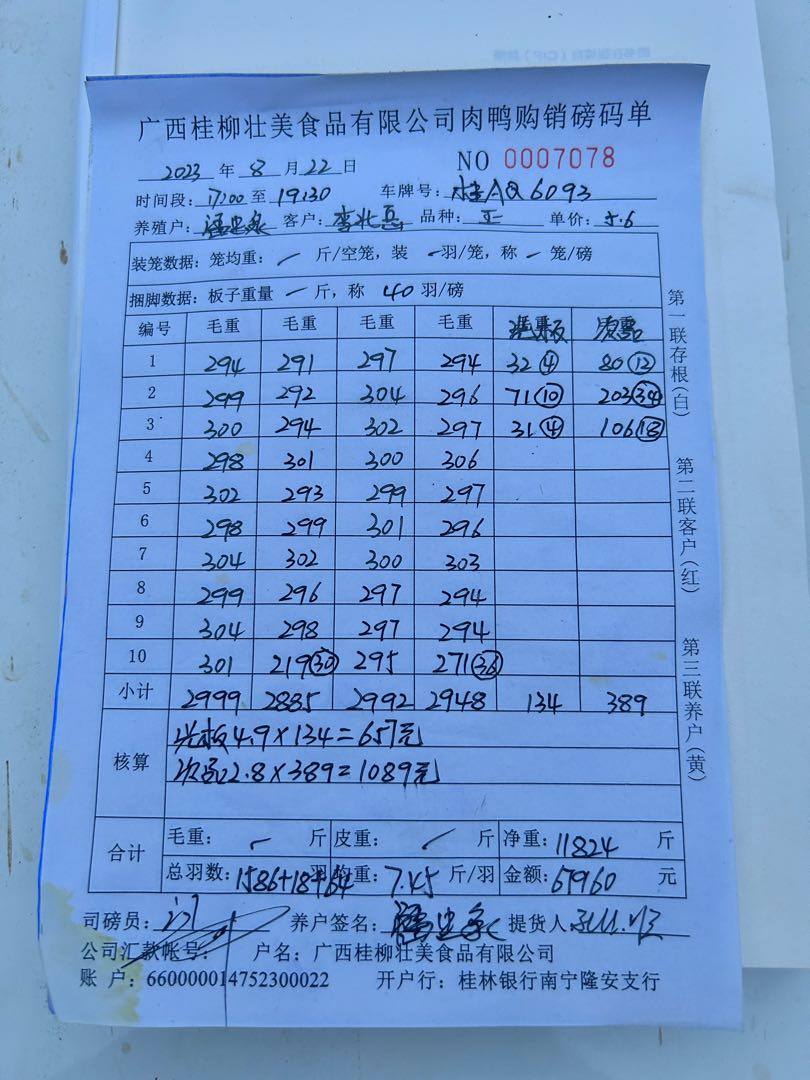 广西桂柳壮美食品有限公司肉鸭购销磅码单
2023 年 8 月 22 日 NO 0007078
时间段: 17:00 至 19:30 车牌号: 桂AQ6093
养殖户: 客户: 李北 品种: 正 单价: 5.6
装笼数据: 笼均重: / 斤/空笼, 装 - 羽/笼, 称 - 笼/磅
捆脚数据: 板子重量 - 斤, 称 40 羽/磅
编号 毛重 毛重 毛重 毛重
1 294 291 297 294 32④ 80⑫
2 299 292 304 296 71⑩ 203㉞
3 300 294 302 297 31④ 106⑱
4 298 301 300 306
5 302 293 299 297
6 298 299 301 296
7 304 302 300 303
8 299 296 297 294
9 304 298 297 294
10 301 219㉚ 295 271㊱
小计 2999 2885 2992 2948 134 389
核算 光板4.9×134=657元
次品2.8×389=1089元
合计 毛重: - 斤 皮重: / 斤 净重: 11824 斤
总羽数: 1586+18+64 羽 均重: 7.45 斤/羽 金额: 67960 元
司磅员: 养户签名: 提货人:
公司汇款帐号: 户名: 广西桂柳壮美食品有限公司
账 户: 660000014752300022 开户行: 桂林银行南宁隆安支行
第一联存根(白)
第二联客户(红)
第三联养户(黄)